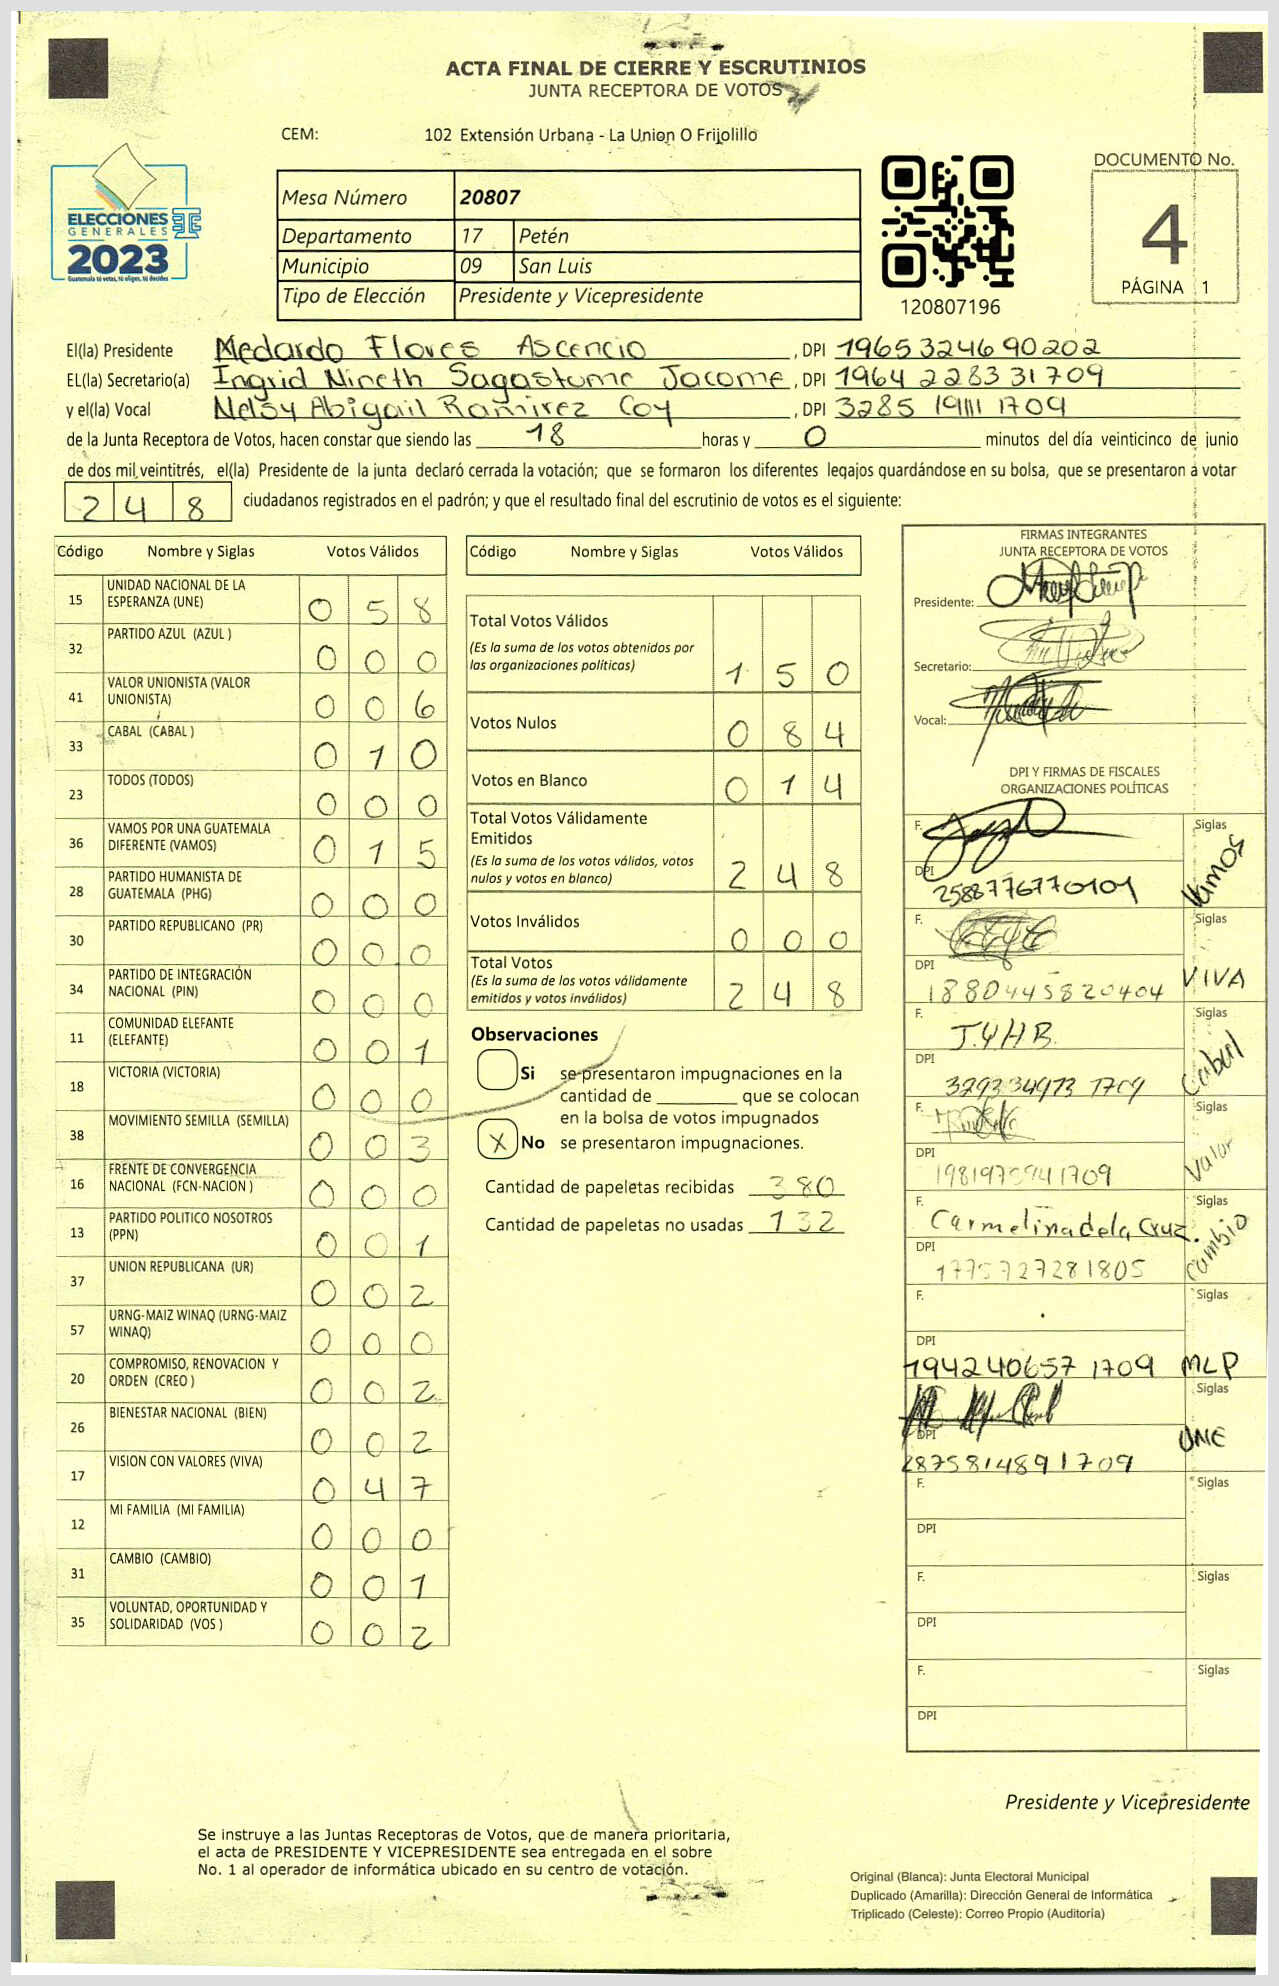 ACTA FINAL DE CIERRE Y ESCRUTINIOS
JUNTA RECEPTORA DE VOTOS
CEM: 102 Extensión Urbana - La Union O Frijolillo
ELECCIONES
GENERALES
2023
Guatemala tú votas, tú eliges, tú decides
Mesa Número 20807
Departamento 17 Petén
Municipio 09 San Luis
Tipo de Elección Presidente y Vicepresidente
120807196
DOCUMENTO No.
4
PÁGINA 1
El(la) Presidente Medardo Flores Ascencio, DPI 1965324690202
EL(la) Secretario(a) Ingrid Nineth Sagastume Jacome, DPI 1964 22833 1709
y el(la) Vocal Nelsy Abigail Ramirez Coy, DPI 3285 19111 1709
de la Junta Receptora de Votos, hacen constar que siendo las 18 horas y 0 minutos del día veinticinco de junio
de dos mil veintitrés, el(la) Presidente de la junta declaró cerrada la votación; que se formaron los diferentes legajos guardándose en su bolsa, que se presentaron a votar
248 ciudadanos registrados en el padrón; y que el resultado final del escrutinio de votos es el siguiente:
Código Nombre y Siglas Votos Válidos
15 UNIDAD NACIONAL DE LA ESPERANZA (UNE) 058
32 PARTIDO AZUL (AZUL ) 000
41 VALOR UNIONISTA (VALOR UNIONISTA) 006
33 CABAL (CABAL ) 010
23 TODOS (TODOS) 000
36 VAMOS POR UNA GUATEMALA DIFERENTE (VAMOS) 015
28 PARTIDO HUMANISTA DE GUATEMALA (PHG) 000
30 PARTIDO REPUBLICANO (PR) 000
34 PARTIDO DE INTEGRACIÓN NACIONAL (PIN) 000
11 COMUNIDAD ELEFANTE (ELEFANTE) 001
18 VICTORIA (VICTORIA) 000
38 MOVIMIENTO SEMILLA (SEMILLA) 003
16 FRENTE DE CONVERGENCIA NACIONAL (FCN-NACION ) 000
13 PARTIDO POLITICO NOSOTROS (PPN) 001
37 UNION REPUBLICANA (UR) 002
57 URNG-MAIZ WINAQ (URNG-MAIZ WINAQ) 000
20 COMPROMISO, RENOVACION Y ORDEN (CREO ) 002
26 BIENESTAR NACIONAL (BIEN) 002
17 VISION CON VALORES (VIVA) 047
12 MI FAMILIA (MI FAMILIA) 000
31 CAMBIO (CAMBIO) 001
35 VOLUNTAD, OPORTUNIDAD Y SOLIDARIDAD (VOS ) 002
Código Nombre y Siglas Votos Válidos
Total Votos Válidos
(Es la suma de los votos obtenidos por
las organizaciones políticas) 150
Votos Nulos 084
Votos en Blanco 014
Total Votos Válidamente
Emitidos
(Es la suma de los votos válidos, votos
nulos y votos en blanco) 248
Votos Inválidos 000
Total Votos
(Es la suma de los votos válidamente
emitidos y votos inválidos) 248
Observaciones
Si se presentaron impugnaciones en la
cantidad de ________ que se colocan
en la bolsa de votos impugnados
X No se presentaron impugnaciones.
Cantidad de papeletas recibidas 380
Cantidad de papeletas no usadas 132
FIRMAS INTEGRANTES
JUNTA RECEPTORA DE VOTOS
Presidente:
Secretario:
Vocal:
DPI Y FIRMAS DE FISCALES
ORGANIZACIONES POLÍTICAS
F. Siglas Vamos
DPI 2588776770101
F. Siglas VIVA
DPI 1880445820404
F. J.Y.H.B. Siglas Cabal
DPI
F. Siglas Valor
DPI
F. Carmelina de la Cruz. Siglas Cambio
DPI 1775727281805
F. Siglas MLP
DPI 194240657 1709
F. Siglas UNE
DPI 2875814891709
F. Siglas
DPI
F. Siglas
DPI
F. Siglas
DPI
Presidente y Vicepresidente
Se instruye a las Juntas Receptoras de Votos, que de manera prioritaria,
el acta de PRESIDENTE Y VICEPRESIDENTE sea entregada en el sobre
No. 1 al operador de informática ubicado en su centro de votación.
Original (Blanca): Junta Electoral Municipal
Duplicado (Amarilla): Dirección General de Informática
Triplicado (Celeste): Correo Propio (Auditoría)